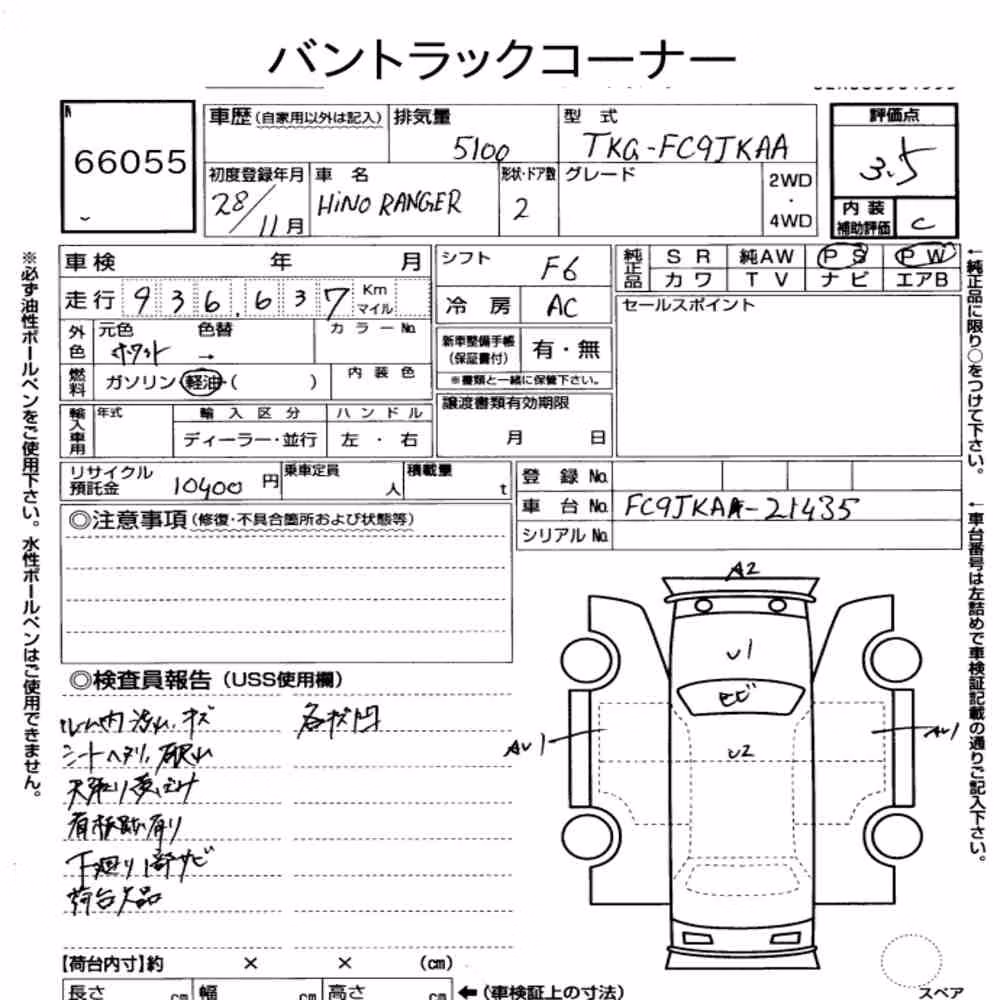 バントラックコーナー
66055
車歴(自家用以外は記入) 排気量 型 式 評価点
5100 TKG-FC9JKAA 3.5
初度登録年月 車 名 形状・ドア数 グレード 2WD・4WD
28/11月 HiNO RANGER 2
内 装 補助評価 C
車 検 年 月
シフト F6
純正品 S R 純AW P S P W
カワ T V ナビ エアB
走行 936,637 Km マイル
冷 房 AC
セールスポイント
外色 元色 色替 カラーNo.
ホワイト →
新車整備手帳(保証書付) 有・無
※書類と一緒に保管下さい。
燃料 ガソリン・軽油・( ) 内 装 色
譲渡書類有効期限
月 日
輸入車用 年式 輸 入 区 分 ハ ン ド ル
ディーラー・並行 左 ・ 右
リサイクル預託金 10400 円 乗車定員 人 積載量 t
登 録 No.
車 台 No. FC9JKAA-21435
シリアル No.
◎注意事項(修復・不具合箇所および状態等)
◎検査員報告(USS使用欄)
ルーム内 汚れ、キズ 各キズ凹
シートヘタリ、破れ
下廻り1部サビ
荷台欠品
A2
U1
U2
AU1
AU1
【荷台内寸】約 × × (cm)
長さ cm 幅 cm 高さ cm ←(車検証上の寸法)
スペア
※必ず油性ボールペンをご使用下さい。水性ボールペンはご使用できません。
←純正品に限り○をつけて下さい。
←車台番号は左詰めで車検証記載の通りご記入下さい。